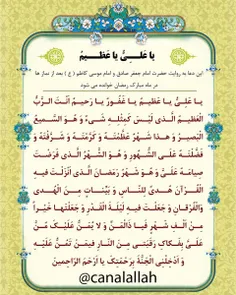 یـا عَلِــیُّ یـا عَـظـیـمُ
این دعا به روایت حضرت امام جعفر صادق و امام موسی کاظم ( ع ) بعد از نماز ها
در ماه مبارک رمضان خوانده می شود
یـا عَـلِـیُّ یـا عَظیمُ یـا غَـفُـورُ یـا رَحیـمُ اَنْـتَ الـرَّبُّ
الْعَظیـمُ الَّذی لَیْسَ کَمِثْلِـهِ شَیء وَ هُـوَ السَّمیـعُ
الْبَصیـرُ وَ هـذا شَهْرٌ عَظَّمْتَـهُ وَ کَرَّمْتَهُ وَ شَرَّفْتَهُ وَ
فَضَّلْتَهُ عَلَی الشُّهُورِ وَ هُـوَ الشَّهْرُ الَّذی فَرَضْتَ
صِیامَهُ عَلَیَّ وَ هُوَ شَهْرُ رَمَضانَ الَّذی اَنْزَلْتَ فیهِ
الْقُرآنَ هُـدیً لِلنّاسِ وَ بَیّناتٍ مِـنَ الْهُـدی
وَالْفُرْقانِ وَ جَعَلْتَ فیهِ لَیْلَةَ الْقَدْرِ وَ جَعَلْتَها خَیْراً
مِـنْ اَلْـفِ شَهْرٍ فَیـا ذَالْمَـنِّ وَ لا یُمَـنُّ عَلَیْـکَ مُـنَّ
عَلَیَّ بِفَکاکِ رَقَبَتـی مِـنَ النّـارِ فیمَنْ تَمُـنُّ عَلَیْـهِ
وَ اَدْخِلْنِی الْجَنَّةَ بِرَحْمَتِکَ یا اَرْحَمَ الرّاحِمینَ
@canalallah